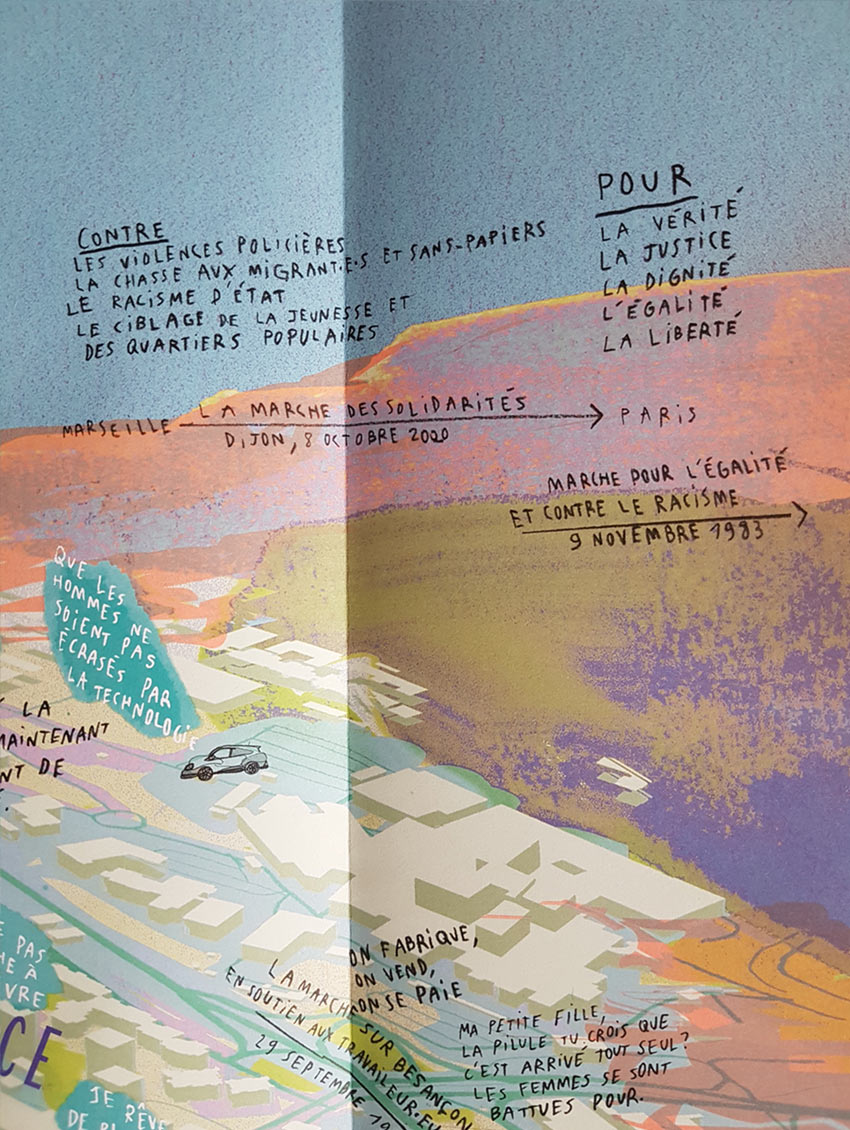 CONTRE
LES VIOLENCES POLICIÈRES
LA CHASSE AUX MIGRANT·E·S ET SANS-PAPIERS
LE RACISME D'ÉTAT
LE CIBLAGE DE LA JEUNESSE ET
DES QUARTIERS POPULAIRES
POUR
LA VÉRITÉ
LA JUSTICE
LA DIGNITÉ
L'ÉGALITÉ
LA LIBERTÉ
MARSEILLE LA MARCHE DES SOLIDARITÉS PARIS
DIJON, 8 OCTOBRE 2020
MARCHE POUR L'ÉGALITÉ
ET CONTRE LE RACISME
9 NOVEMBRE 1983
QUE LES
HOMMES NE
SOIENT PAS
ÉCRASÉS PAR
LA TECHNOLOGIE
LA
MAINTENANT
NT DE
PAS
HE À
VRE
CE
JE RÊVE
DE
ON FABRIQUE,
ON VEND,
ON SE PAIE
LA MARCHE SUR BESANÇON
EN SOUTIEN AUX TRAVAILEUR·EU
29 SEPTEMBRE 19
MA PETITE FILLE,
LA PILULE TU CROIS QUE
C'EST ARRIVÉ TOUT SEUL?
LES FEMMES SE SONT
BATTUES POUR.